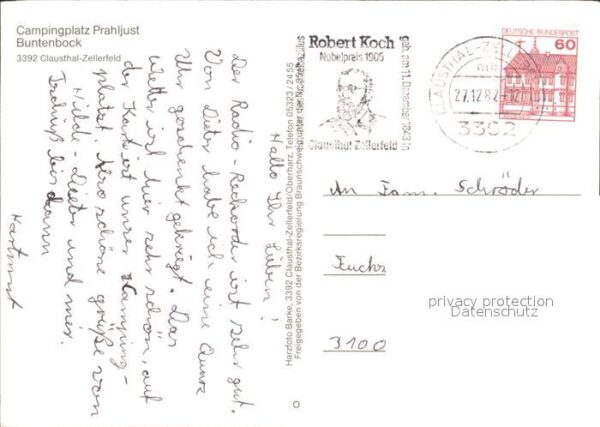 Campingplatz Prahljust
Buntenbock
3392 Clausthal-Zellerfeld
Hallo Ihr Lieben!
Der Radio-Rechorder ist sehr gut.
Von Dieter habe ich eine Quarz
Uhr geschenkt gekriegt. Das
Wetter ist hier sehr schön, auf
der Karte ist unser Camping-
platz. Also schöne grüße von
Hilde-Dieter und mir.
Tschüß bis dann
Hartmut
Harzfoto Barke, 3392 Clausthal-Zellerfeld/Oberharz, Telefon 05323/2455
Freigegeben von der Bezirksregierung Braunschweig unter
Robert Koch
Nobelpreis 1905
geb. am 11. Dezember 1843 in
Clausthal-Zellerfeld
CLAUSTHAL-ZELLERFELD
27.12.82
3392
DEUTSCHE BUNDESPOST
60
An Fam. Schröder
Fuchs
3100
privacy protection
Datenschutz